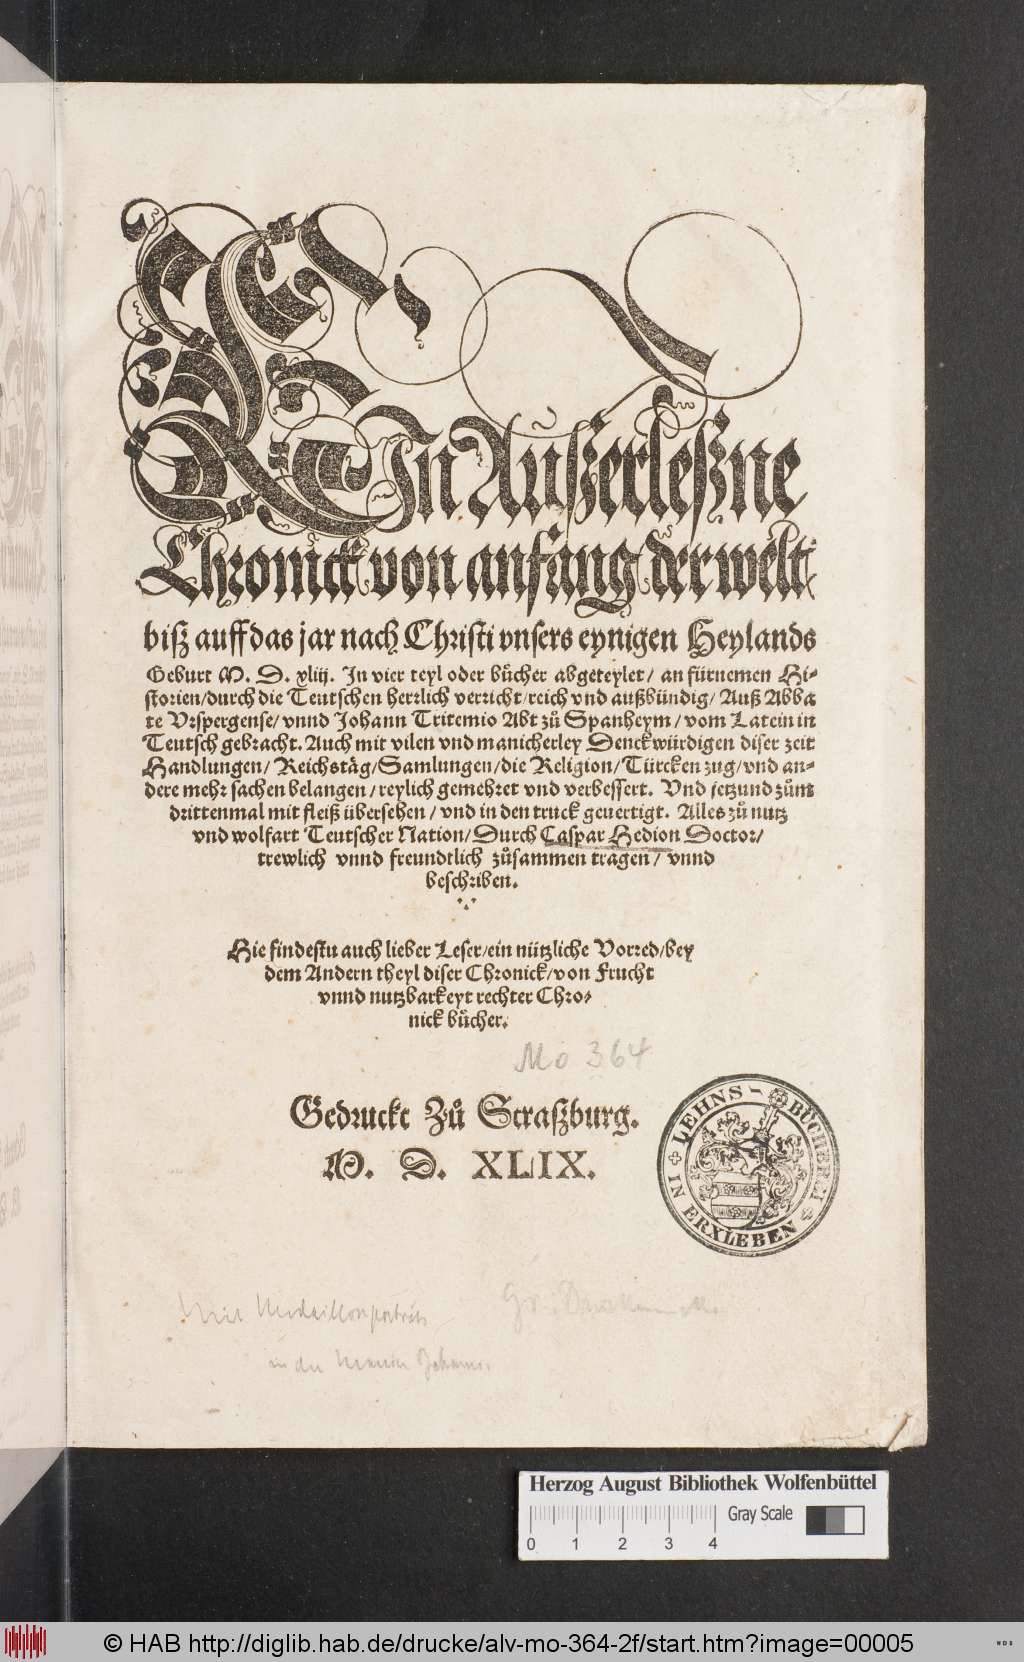 EIn Außerleßne
Chronick von anfang der welt
biß auff das jar nach Christi vnsers eynigen Heylands
Geburt M. D. xliij. In vier teyl oder bůcher abgeteylet/ an fürnemen Hi-
storien/durch die Teutschen herrlich verricht/reich vnd außbündig/ Auß Abba
te Vrspergense/ vnnd Johann Tritemio Abt zů Spanheym/ vom Latein in
Teutsch gebracht. Auch mit vilen vnd manicherley Denckwürdigen diser zeit
Handlungen/ Reichstäg/ Samlungen/ die Religion/ Türcken zug/ vnd an-
dere mehr sachen belangen/ reylich gemehret vnd verbessert. Vnd jetzund zům
drittenmal mit fleiß übersehen/ vnd in den truck geuertigt. Alles zů nutz
vnd wolfart Teutscher Nation/ Durch Caspar Hedion Doctor/
trewlich vnnd freundtlich zůsammen tragen/ vnnd
beschriben.
Hie findestu auch lieber Leser/ein nützliche Vorred/bey
dem Andern theyl diser Chronick/von Frucht
vnnd nutzbarkeyt rechter Chro-
nick bůcher.
Mo 364
Gedruckt Zů Straßburg.
M. D. XLIX.
LEHNS-BÜCHEREI
IN ERXLEBEN
Mit Medaillonporträts
in der Manier
Herzog August Bibliothek Wolfenbüttel
Gray Scale
0 1 2 3 4
© HAB http://diglib.hab.de/drucke/alv-mo-364-2f/start.htm?image=00005